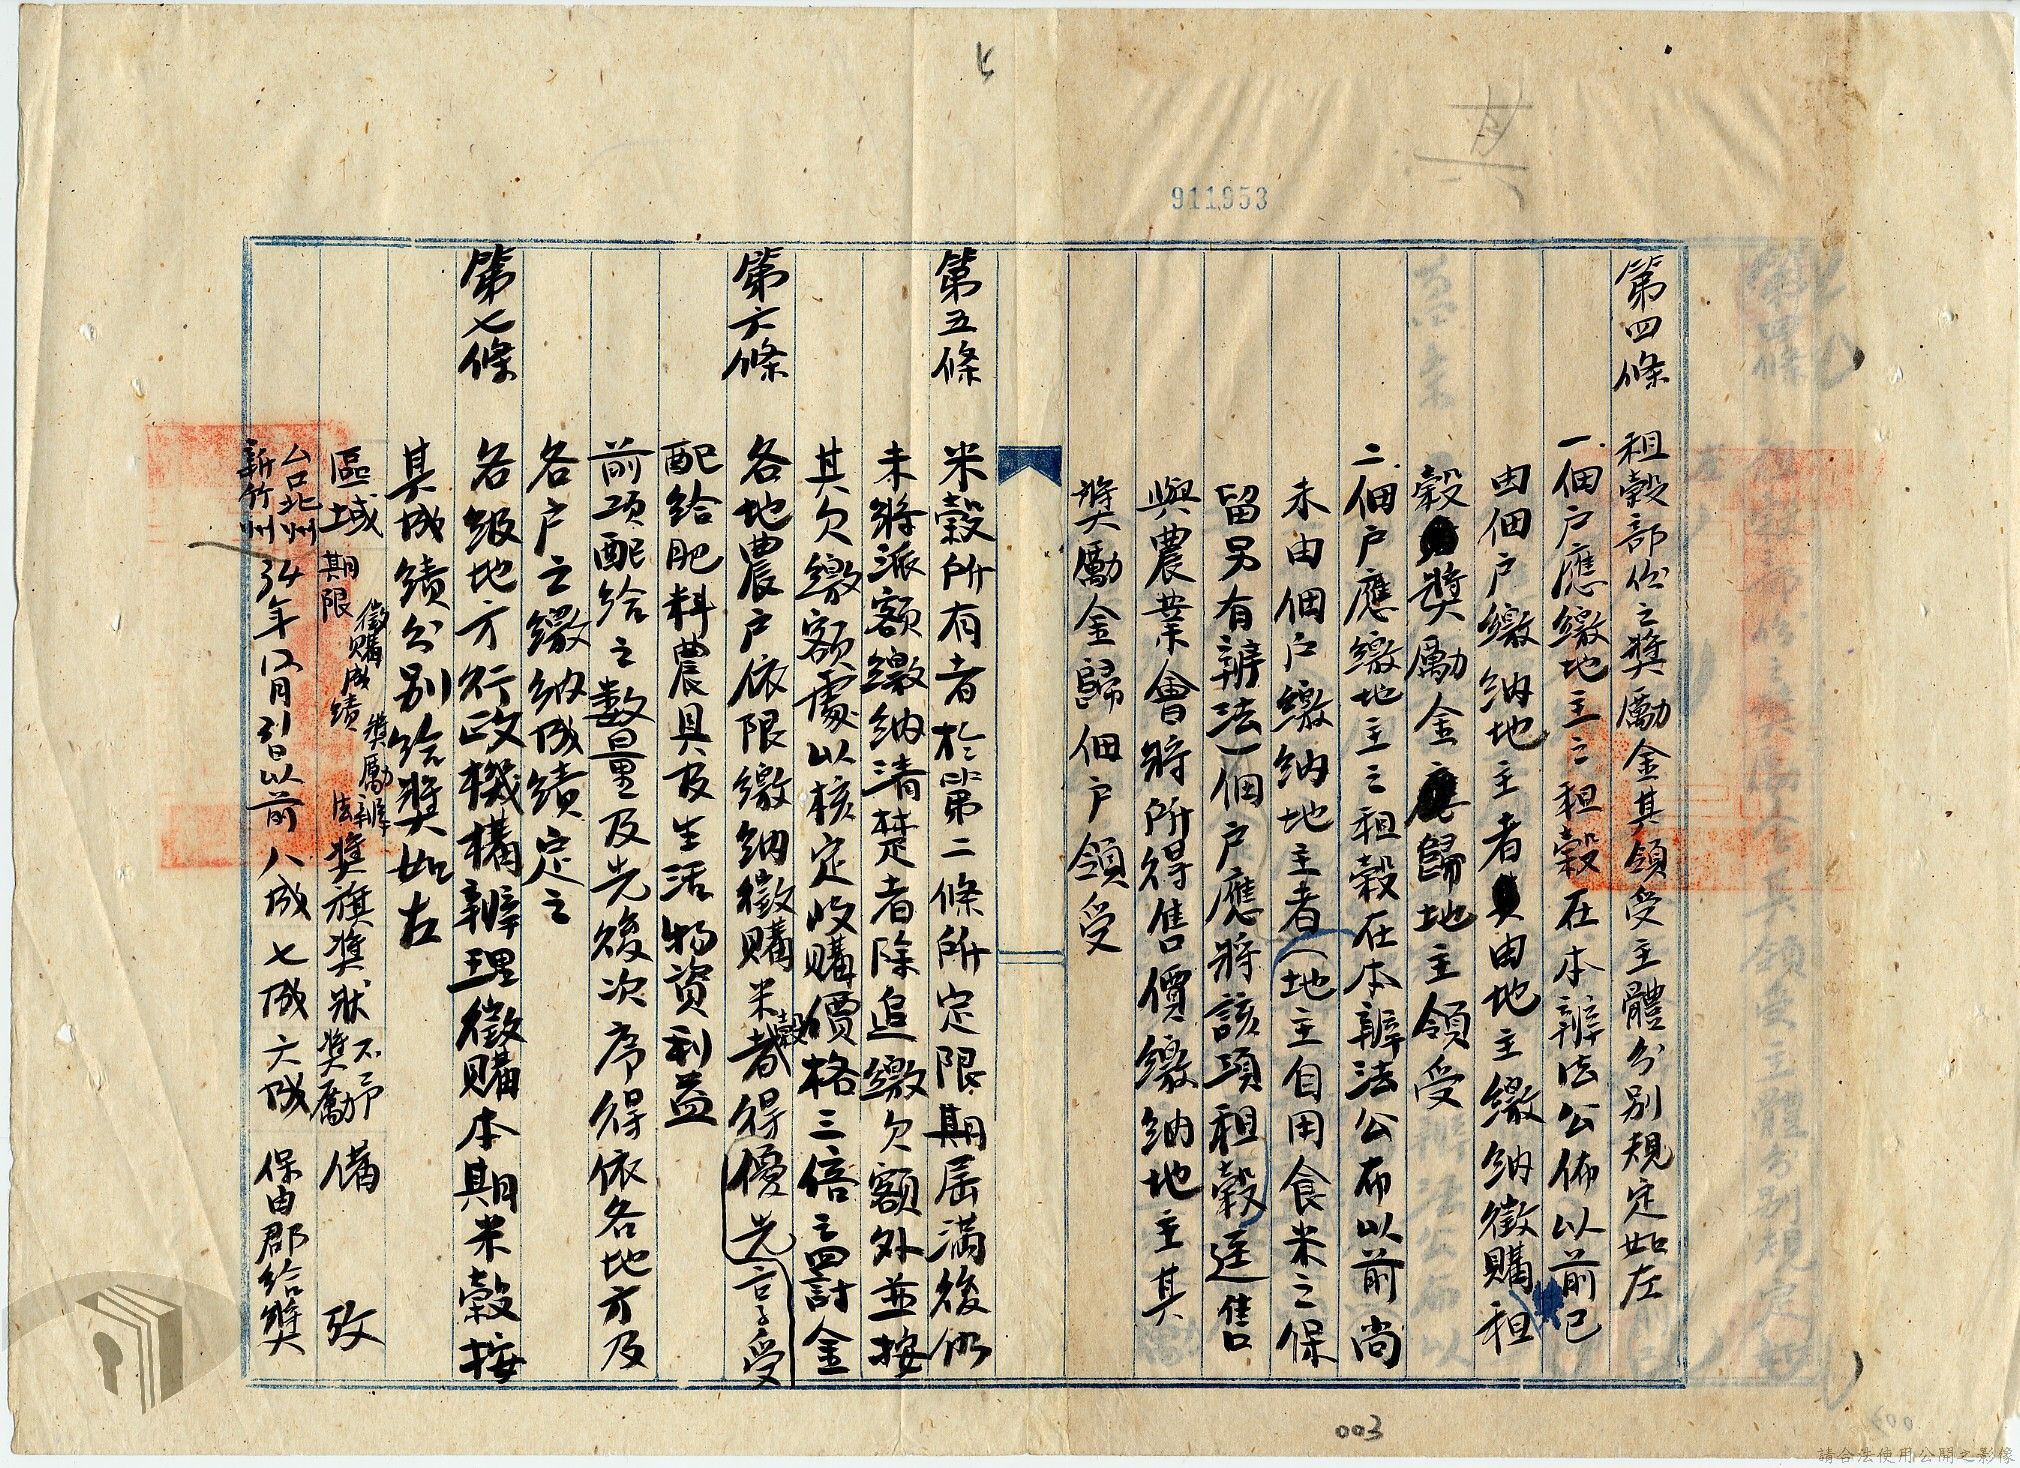 911953
第四條 租穀部份之獎勵金其領受主體分別規定如左
一.佃戶應繳地主之租穀在本辦法公佈以前已
由佃戶繳納地主者由地主繳納徵購租
穀獎勵金歸地主領受
二.佃戶應繳地主之租穀在本辦法公布以前尚
未由佃戶繳納地主者(地主自用食米之保
留另有辦法)佃戶應將該項租穀逕售
與農業會將所得售價繳納地主其
獎勵金歸佃戶領受
第五條 米穀所有者於第二條所定限期屆滿後仍
未將派額繳納清楚者除追繳欠額外並按
其欠繳額處以核定收購價格三倍之罰金
第六條 各地農戶依限繳納徵購米穀者得優先享受
配給肥料農具及生活物資利益
前項配給之數量及先後次序得依各地方及
各戶之繳納成績定之
第七條 各級地方行政機構辦理徵購本期米穀按
其成績分別給獎如左
區域 期限 徵購成績 獎勵辦法 獎旗 獎狀 不予獎勵 備攷
台北州 新竹州 34年12月31日以前 八成 七成 六成 保由郡給獎
003
請合法使用公開之影像